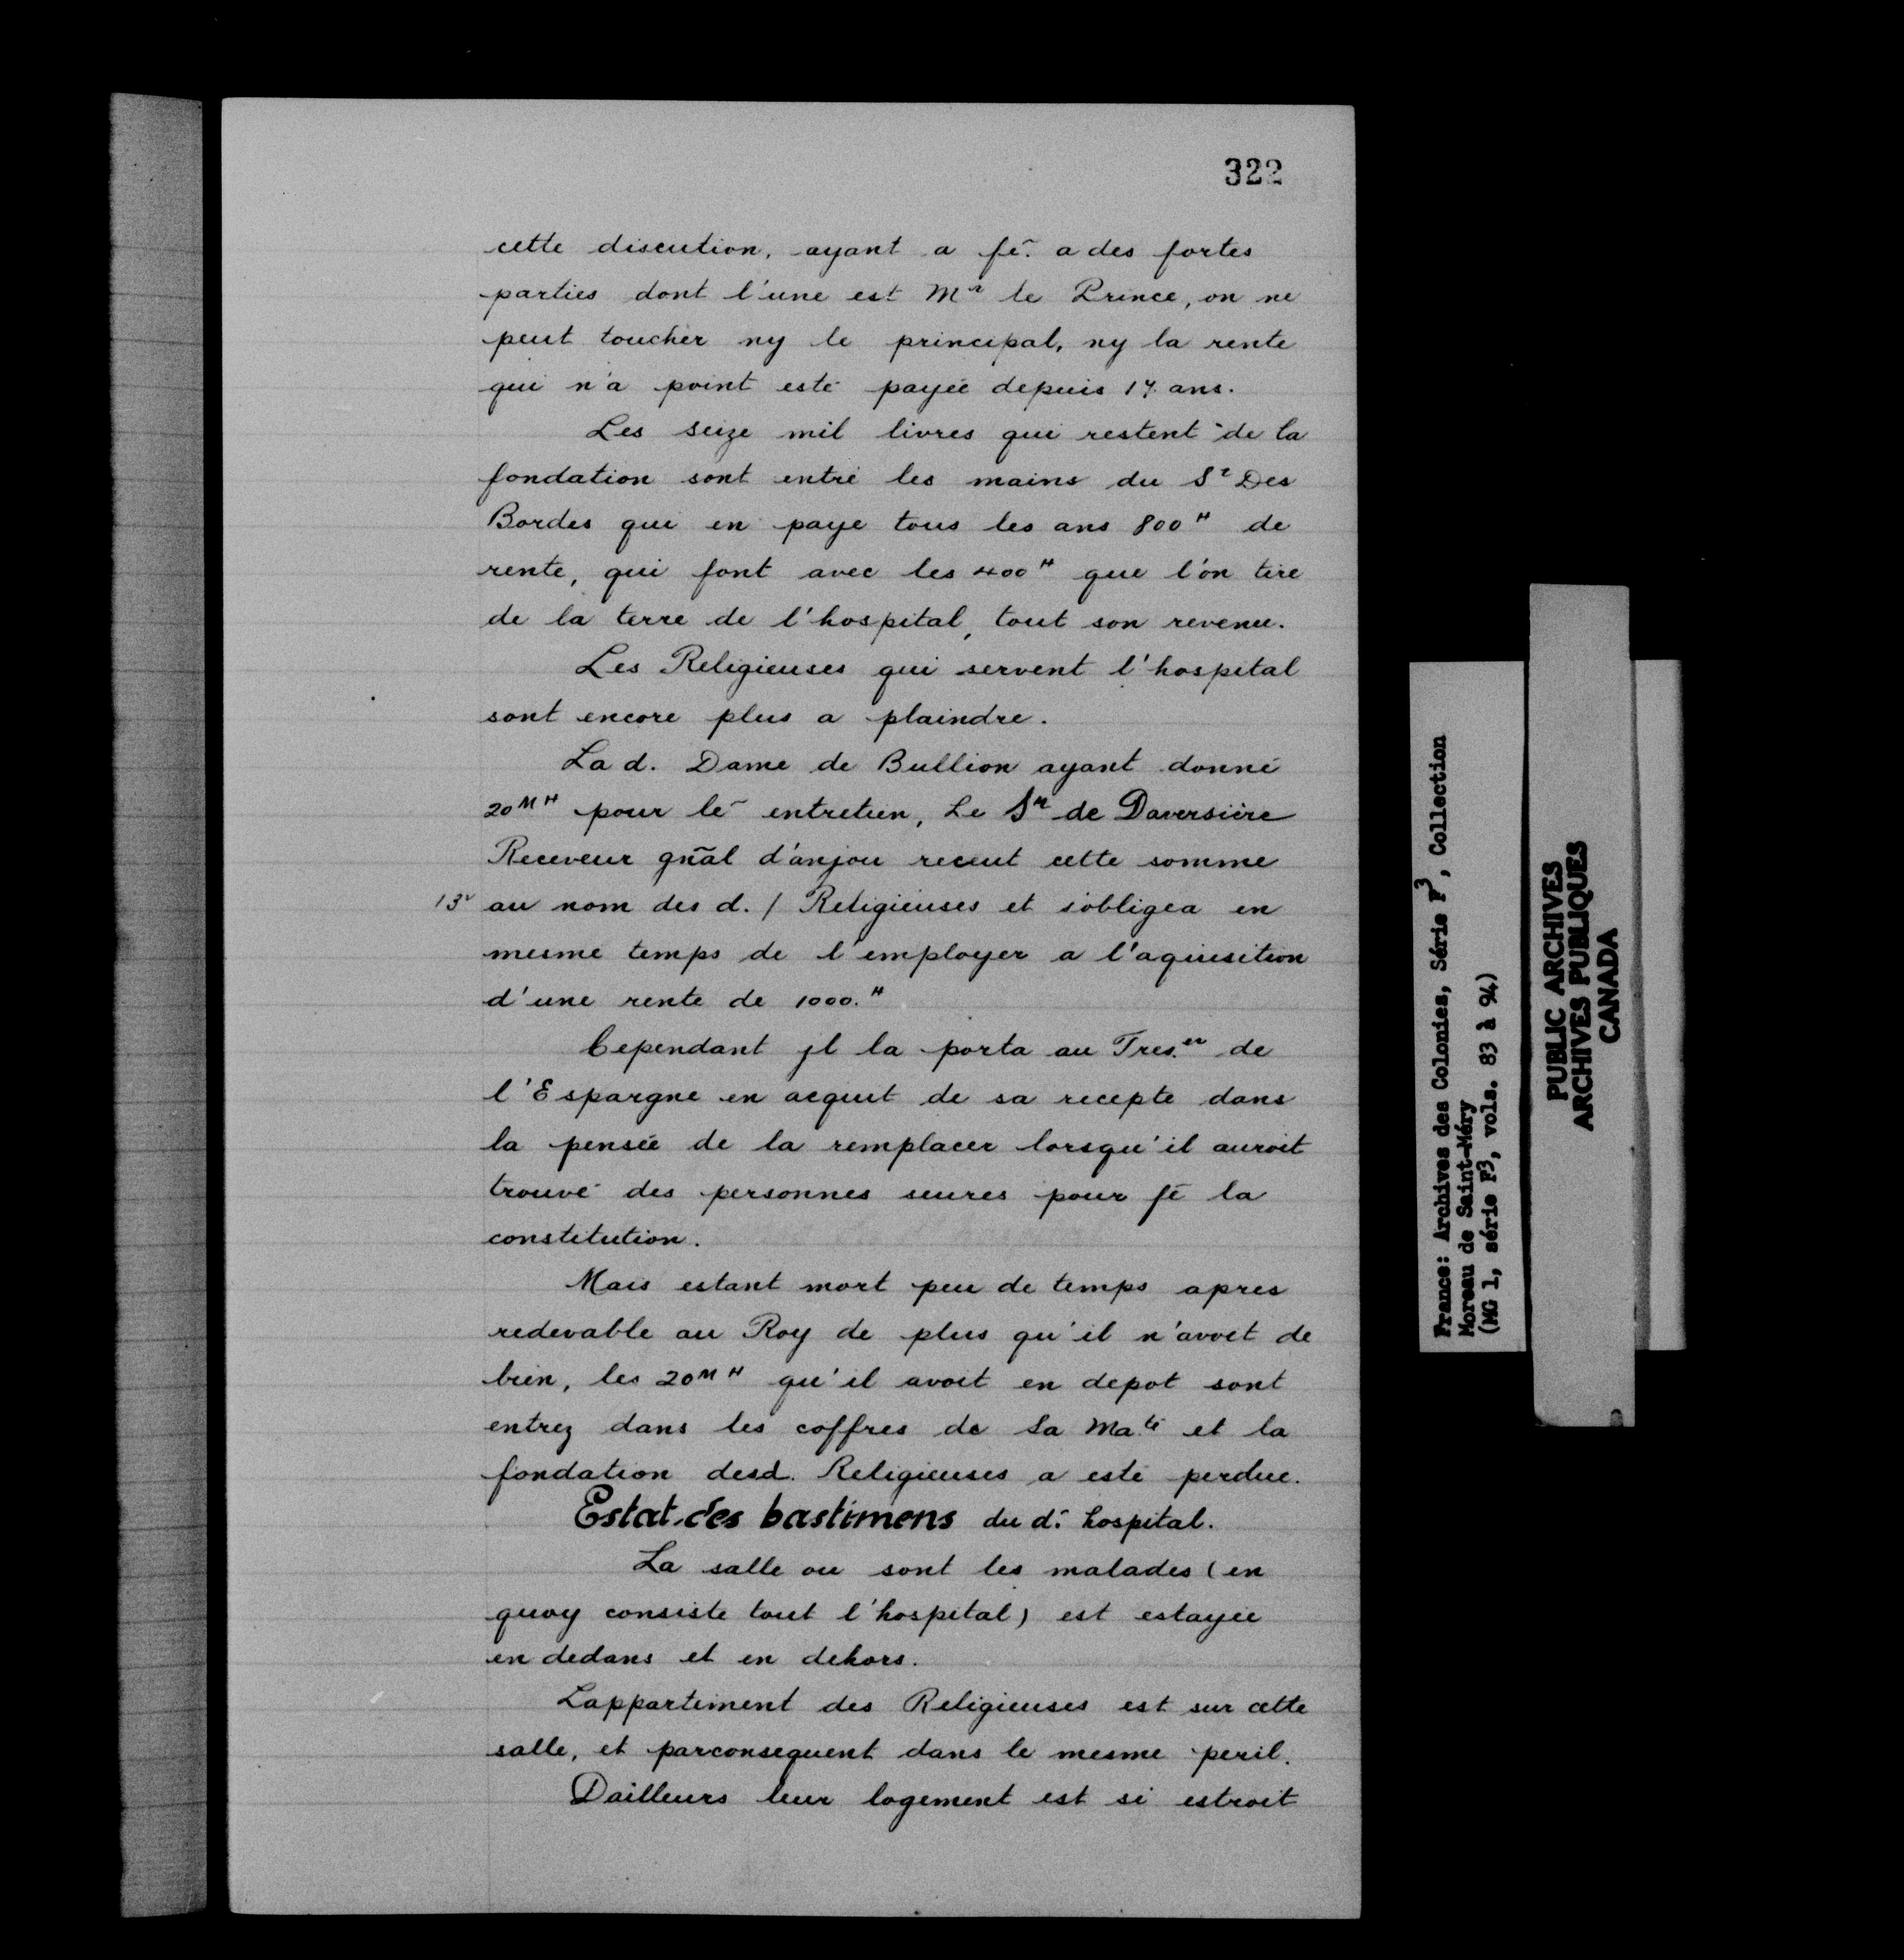 322
cette discution, ayant a fē. a des fortes
parties dont l'une est Mr le Prince, on ne
peut toucher ny le principal, ny la rente
qui n'a point esté payée depuis 17 ans.
Les seize mil livres qui restent de la
fondation sont entre les mains du Sr Des
Bordes qui en paye tous les ans 800# de
rente, qui font avec les 400# que l'on tire
de la terre de l'hospital, tout son revenu.
Les Religieuses qui servent l'hospital
sont encore plus a plaindre.
La d. Dame de Bullion ayant donné
20M# pour lē entretien, Le Sr de Daversière
Receveur gñal d'anjou receut cette somme
13v au nom des d. / Religieuses et s'obligea en
mesme temps de l'employer a l'aquisition
d'une rente de 1000.#
Cependant jl la porta au Tres.er de
l'Espargne en acquit de sa recepte dans
la pensée de la remplacer lorsqu'il auroit
trouvé des personnes seures pour fē la
constitution.
Mais estant mort peu de temps apres
redevable au Roy de plus qu'il n'avoit de
bien, les 20M# qu'il avoit en depot sont
entrez dans les coffres de Sa Ma.té et la
fondation desd. Religieuses a esté perdue.
Estat des bastimens du d. hospital.
La salle ou sont les malades (en
quoy consiste tout l'hospital) est estayée
en dedans et en dehors.
Lappartement des Religieuses est sur cette
salle, et parconsequent dans le mesme peril.
Dailleurs leur logement est si estroit
France: Archives des Colonies, Série F3, Collection
Moreau de Saint-Méry
(MG 1, série F3, vols. 83 à 94)
PUBLIC ARCHIVES
ARCHIVES PUBLIQUES
CANADA